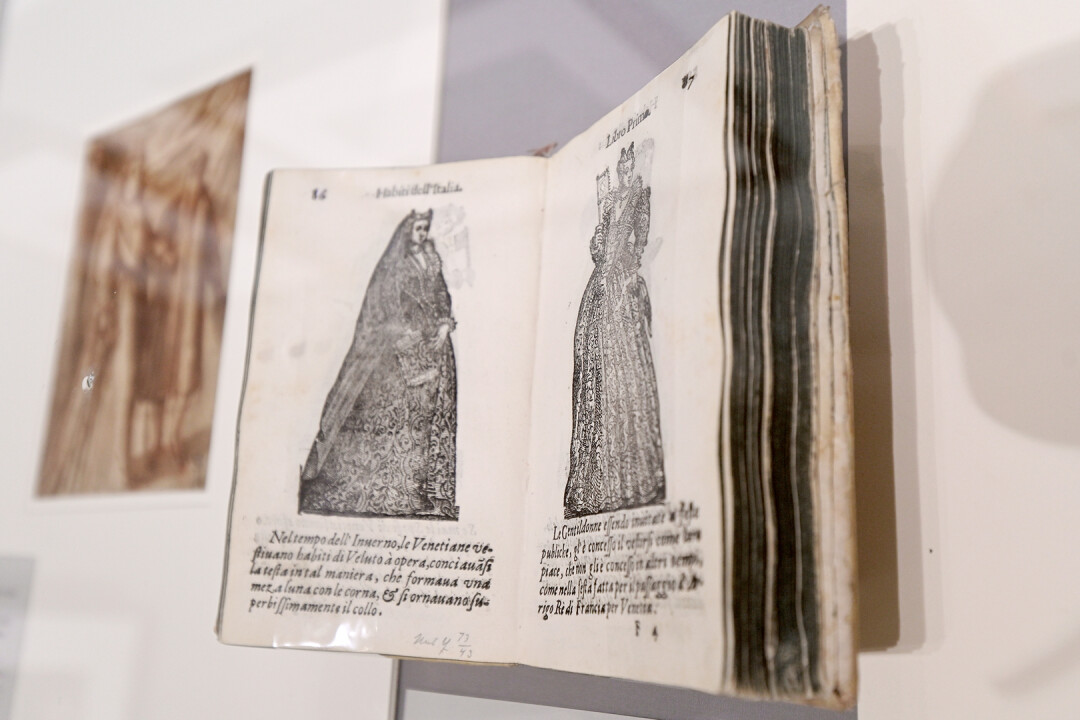 86
Habiti dell'Italia.
Nel tempo dell' Inuerno, le Venetiane ve-
stiuano habiti di Veluto à opera, conciauãsi
la testa in tal maniera, che formaua vna
meza luna con le corna, & si ornauano su-
perbissimamente il collo.
73
43
Libro Primo.
87
Le Gentildonne essendo inuitate à feste
publiche, gl'è concesso il vestirsi come loro
piace, che non gli è concesso in altri tempi,
come nella festa fatta per il passaggio d'
rigo Rè di Francia per Venetia.
F 4